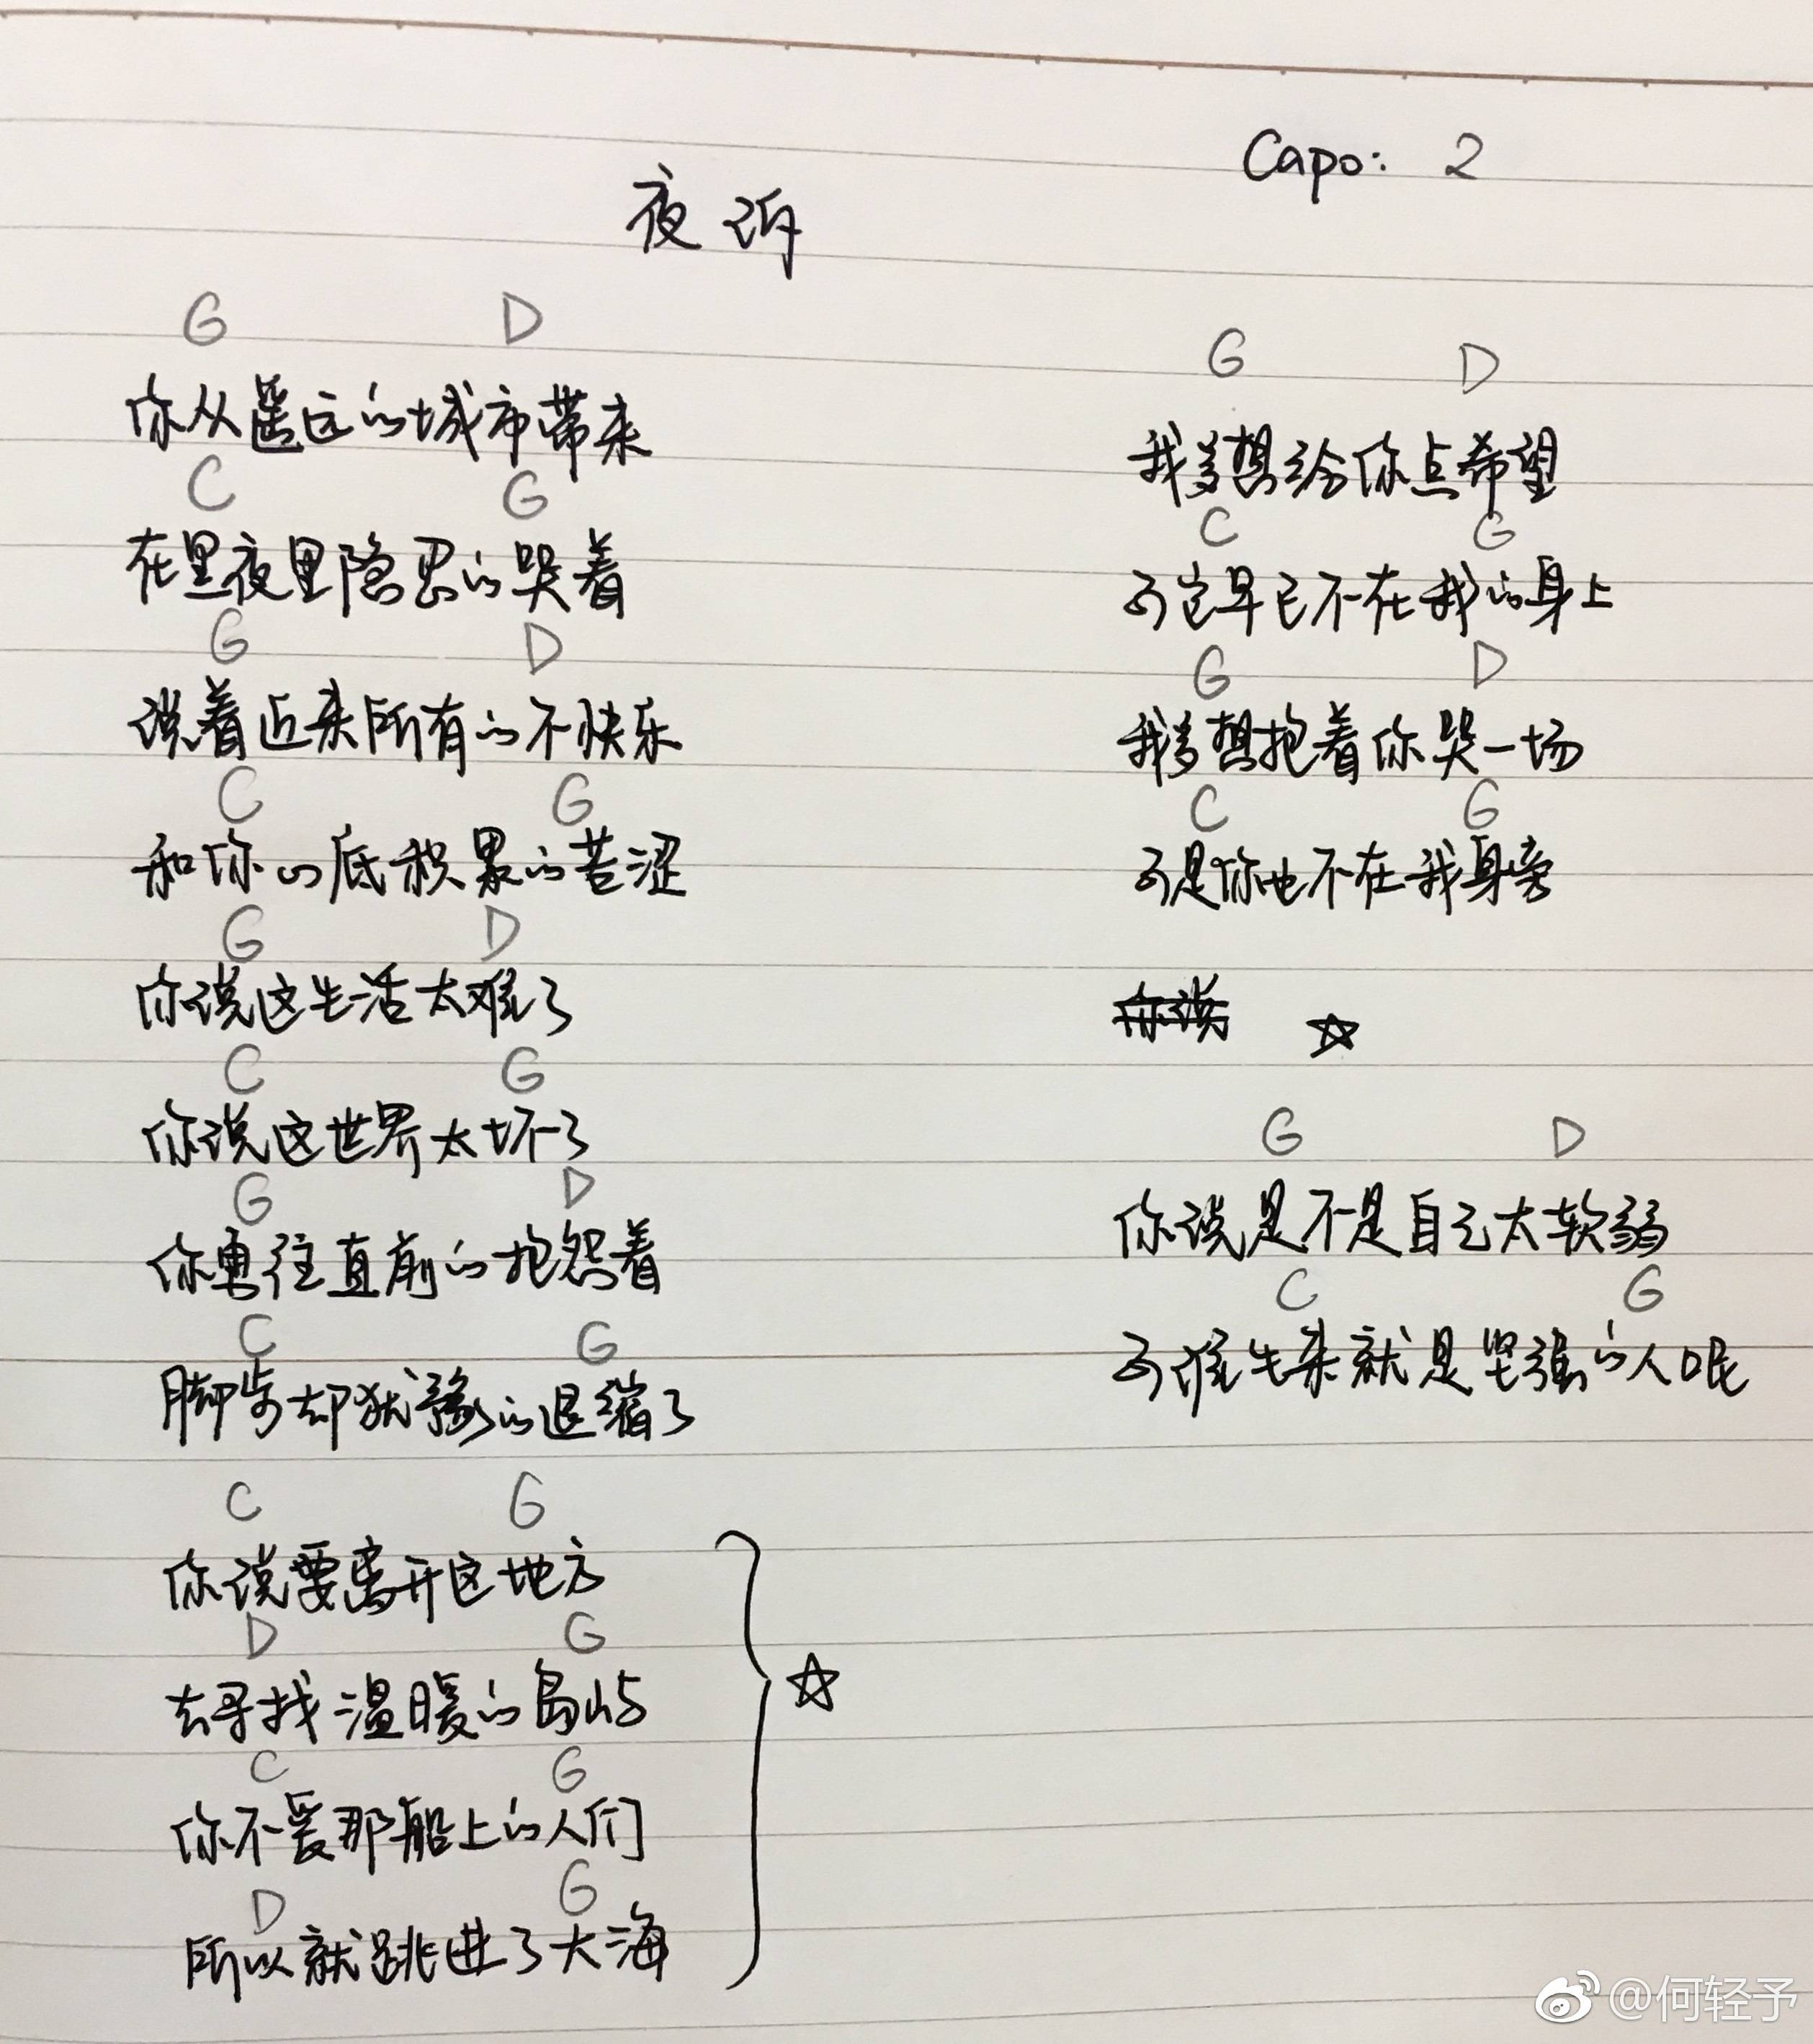 Capo: 2
夜诉
G D
你从遥远的城市带来
C G
在黑夜里隐忍的哭着
G D
说着近来所有的不快乐
C G
和你心底积累的苦涩
G D
你说这生活太难了
C G
你说这世界太坏了
G D
你勇往直前的抱怨着
C G
脚步却犹豫的退缩了
C G
你说要离开这地方
D G
去寻找温暖的岛屿
C G
你不爱那船上的人们
D G
所以就跳进了大海
☆
G D
我多想给你点希望
C G
可它早已不在我的身上
G D
我多想抱着你哭一场
C G
可是你也不在我身旁
你说 ☆
G D
你说是不是自己太软弱
C G
可谁生来就是坚强的人呢
@何轻予